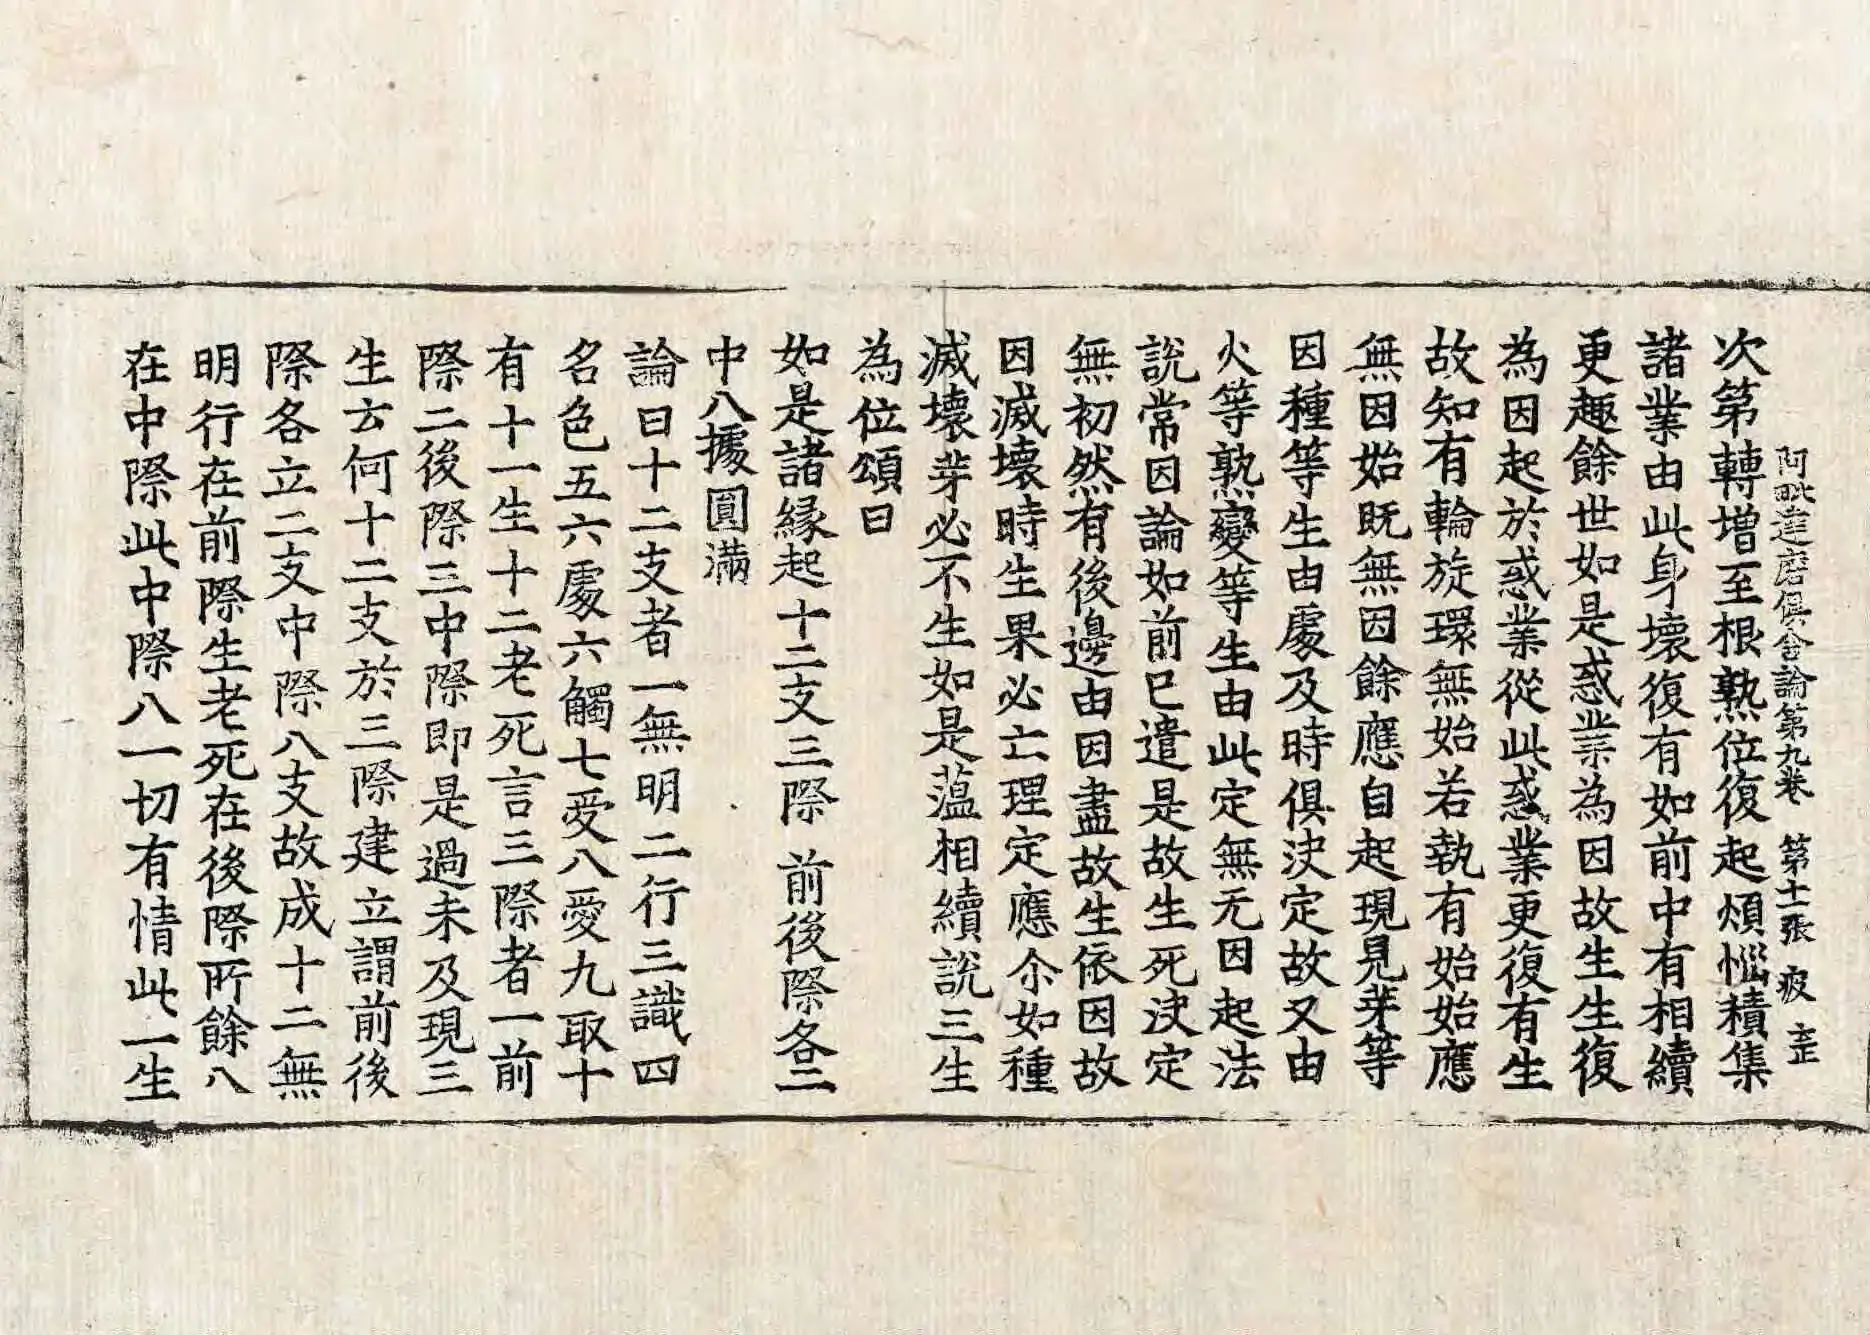 阿毗達磨俱舍論第九卷 第十一張 疲
次第轉增至根熟位復起煩惱積集
諸業由此身壞復有如前中有相續
更趣餘世如是惑業為因故生生復
為因起於惑業從此惑業更復有生
故知有輪旋環無始若執有始始應
無因始既無因餘應自起現見芽等
因種等生由處及時俱決定故又由
火等熟變等生由此定無无因起法
說常因論如前已遣是故生死決定
無初然有後邊由因盡故生依因故
因滅壞時生果必亡理定應尒如種
滅壞芽必不生如是薀相續說三生
為位頌曰
如是諸緣起十二支三際 前後際各二
中八據圓滿
論曰十二支者一無明二行三識四
名色五六處六觸七受八愛九取十
有十一生十二老死言三際者一前
際二後際三中際即是過未及現三
生云何十二支於三際建立謂前後
際各立二支中際八支故成十二無
明行在前際生老死在後際所餘八
在中際此中際八一切有情此一生